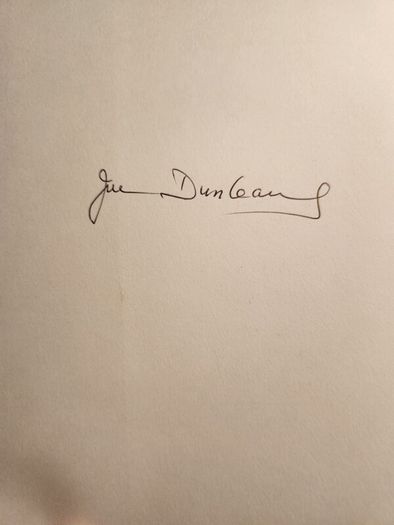 Joe Dunleavy